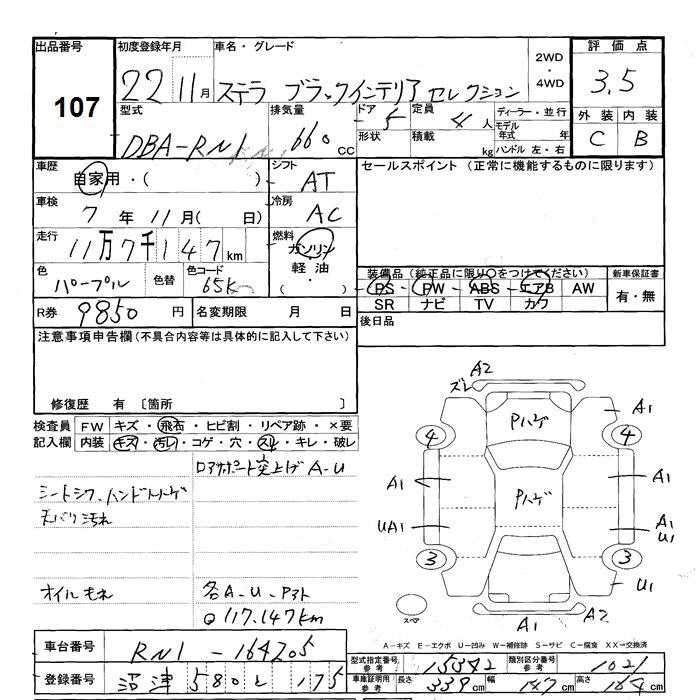 出品番号 初度登録年月 車名・グレード 2WD・4WD 評価点
107 22 11月 ステラ ブラックインテリア セレクション 3.5
型式 排気量 ドア 5 定員 4人 ディーラー・並行 外装 内装
DBA-RN1 660cc 形状 積載 kg モデル年式 年 ハンドル 左・右 C B
車歴 自家用・( ) シフト AT セールスポイント (正常に機能するものに限ります)
車検 7年 11月( 日) 冷房 AC
走行 11万7千147km 燃料 ガソリン 軽油 ( )
色 パープル 色替 色コード 65K
装備品 (純正品に限り○をつけてください) 新車保証書
PS・PW・ABS・エアB AW 有・無
SR ナビ TV カワ
R券 9850円 名変期限 月 日 後日品
注意事項申告欄 (不具合内容等は具体的に記入して下さい)
修復歴 有 〔箇所 〕
検査員 FW キズ・飛石・ヒビ割・リペア跡・×要
記入欄 内装 キズ・汚レ・コゲ・穴・スレ・キレ・破レ
ロアサポート突上げ A-U
シートシワ、ハンドルハゲ
天バリ汚れ
オイルもれ 各A-U-Pヌト
117,147km
A2
ズレ
Pハゲ
A1
4 4
A1 Pハゲ A1
UA1 A1
U1
3 3
U1
スペア A1 A2
A-キズ E-エクボ U-凹み W-補修跡 S-サビ C-腐食 XX-交換済
車台番号 RN1-164205 型式指定番号 参考 15342 類別区分番号 参考 1021
登録番号 沼津 580 と 175 車庫証明用 参考 長さ 339cm 幅 147cm 高さ 164cm